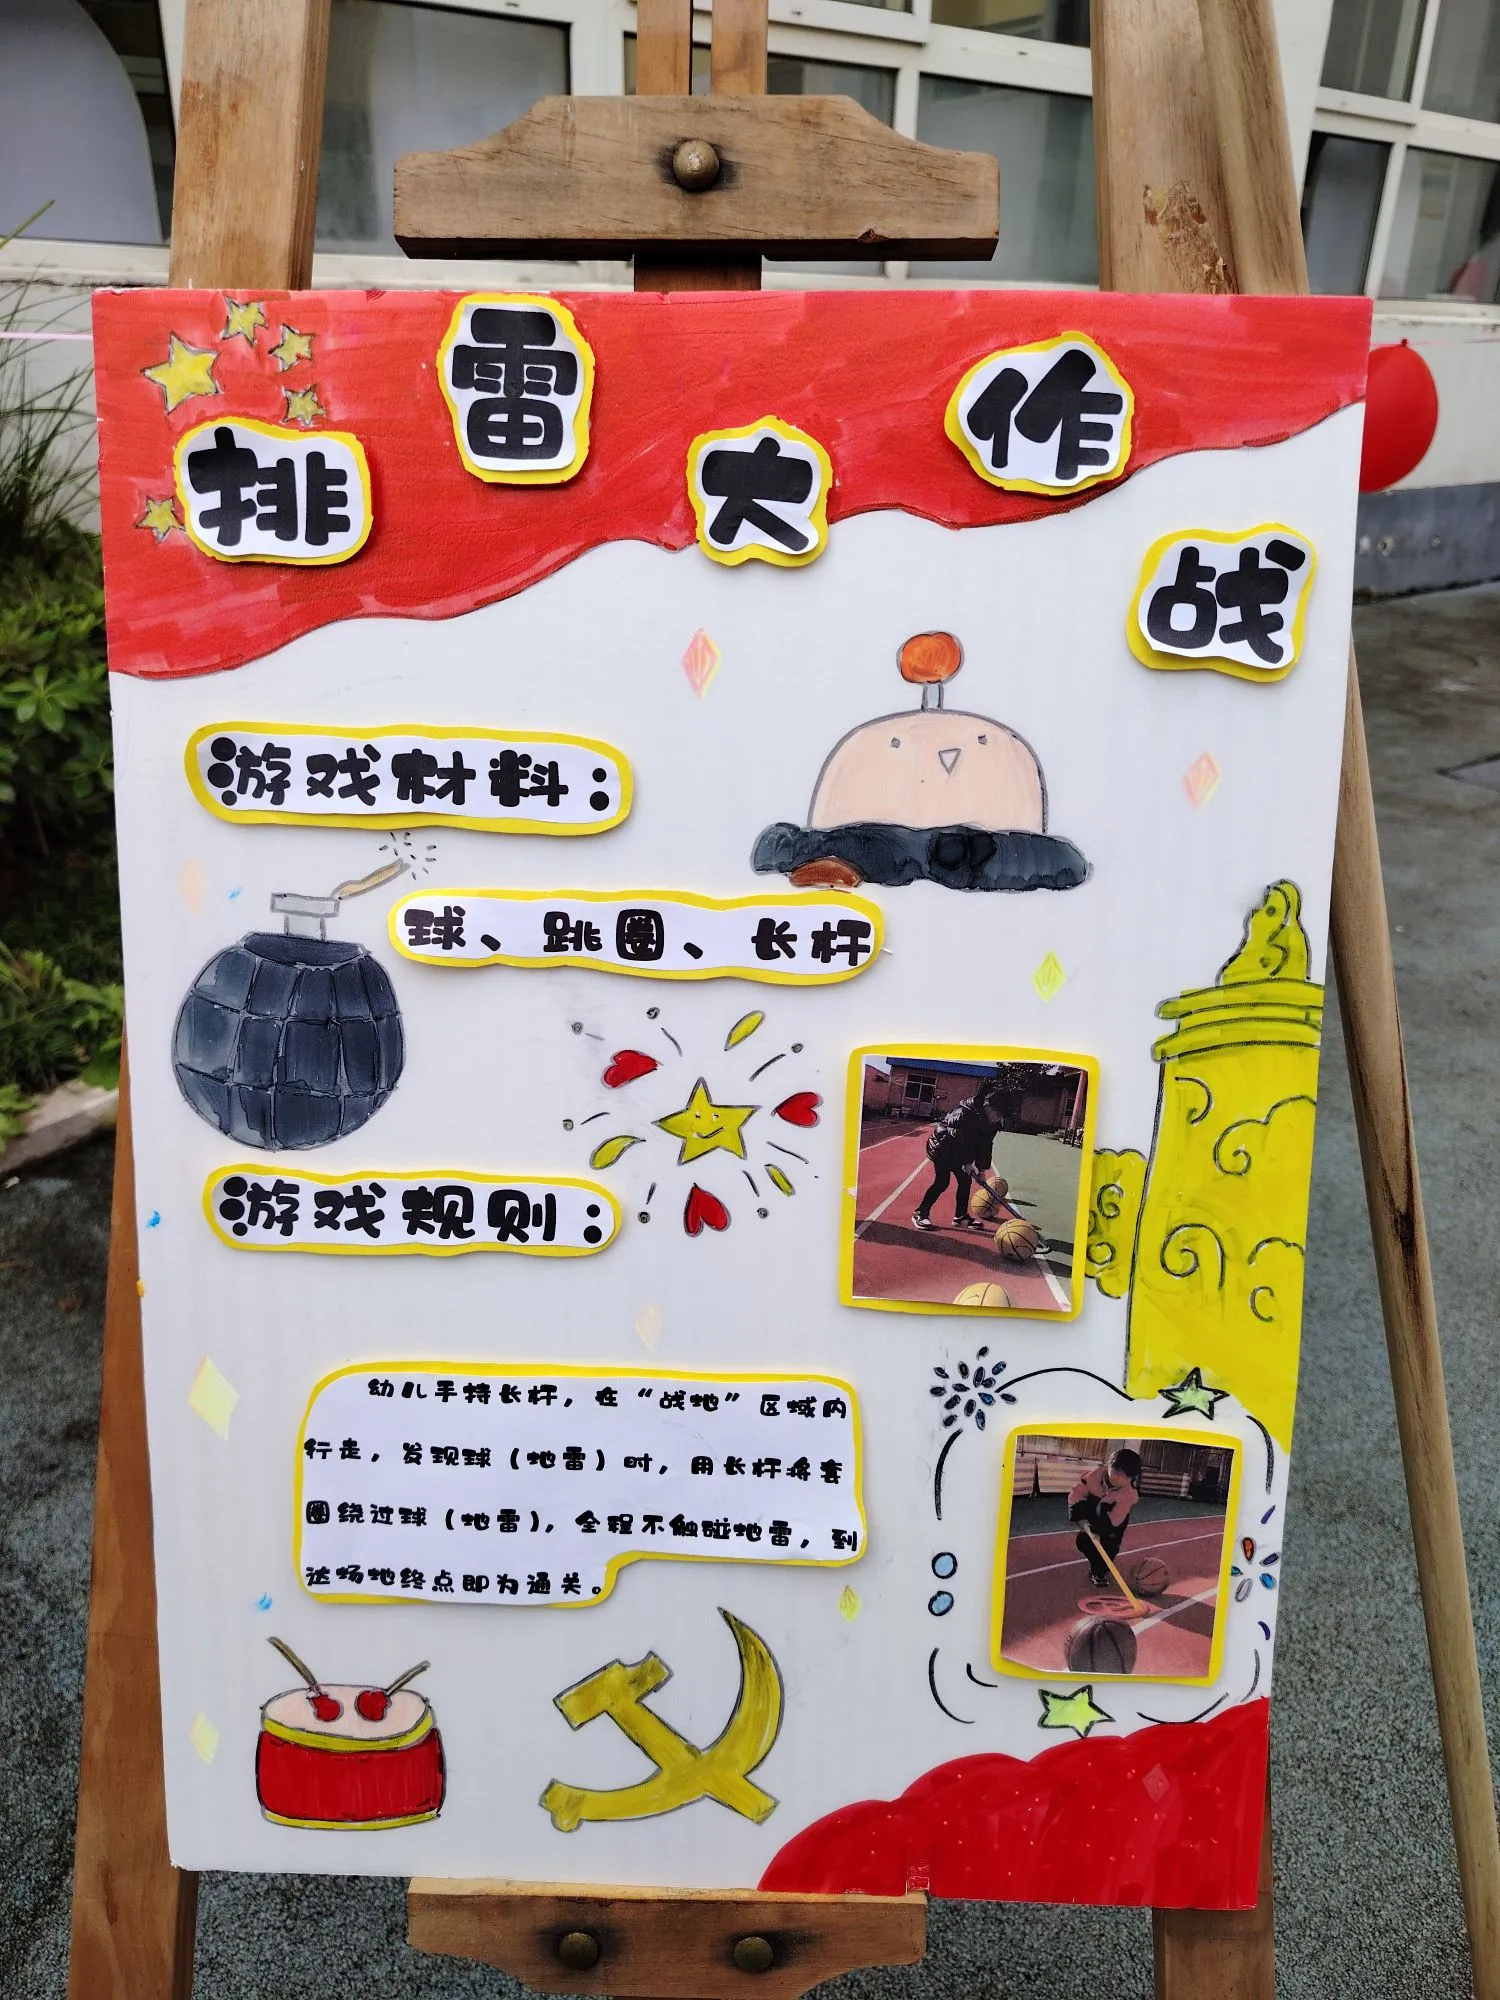 排雷大作战
游戏材料：
球、跳圈、长杆
游戏规则：
幼儿手持长杆，在“战地”区域内
行走，发现球（地雷）时，用长杆将套
圈绕过球（地雷），全程不触碰地雷，到
达场地终点即为通关。